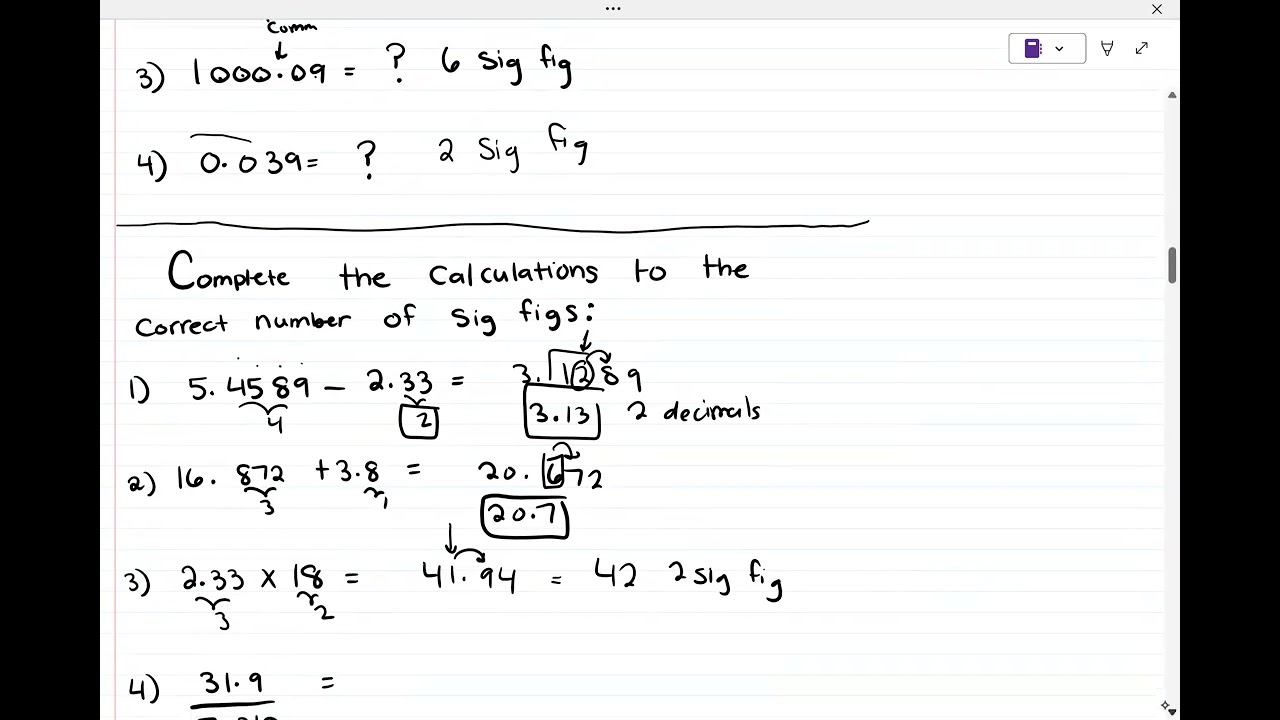 Comm
3) 1000.09 = ? 6 sig fig
4) 0.039 = ? 2 Sig fig
Complete the calculations to the
correct number of sig figs:
1) 5.4589 - 2.33 = 3.1289
4 2 3.13 2 decimals
2) 16.872 + 3.8 = 20.672
3 1 20.7
3) 2.33 x 18 = 41.94 = 42 2 sig fig
3 2
4) 31.9 =